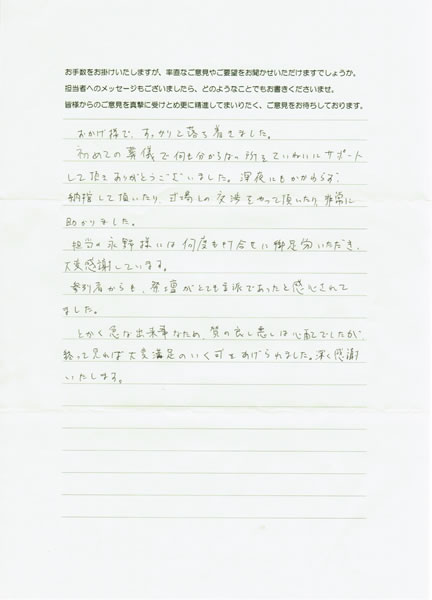 お手数をお掛けいたしますが、率直なご意見やご要望をお聞かせいただけますでしょうか。
担当者へのメッセージもございましたら、どのようなことでもお書きくださいませ。
皆様からのご意見を真摯に受けとめ更に精進してまいりたく、ご意見をお待ちしております。
おかげ様で、すっかりと落ち着きました。
初めての葬儀で何も分からない所をていねいにサポート
して頂きありがとうございました。深夜にもかかわらず、
納棺して頂いたり、式場との交渉をやって頂いたり、非常に
助かりました。
担当の永野様には何度も打合せに御足労いただき、
大変感謝しています。
参列者からも、祭壇がとても立派であったと感心されて
ました。
とかく急な出来事なため、質の良し悪しは心配でしたが、
終って見れば大変満足のいく式をあげられました。深く感謝
いたします。